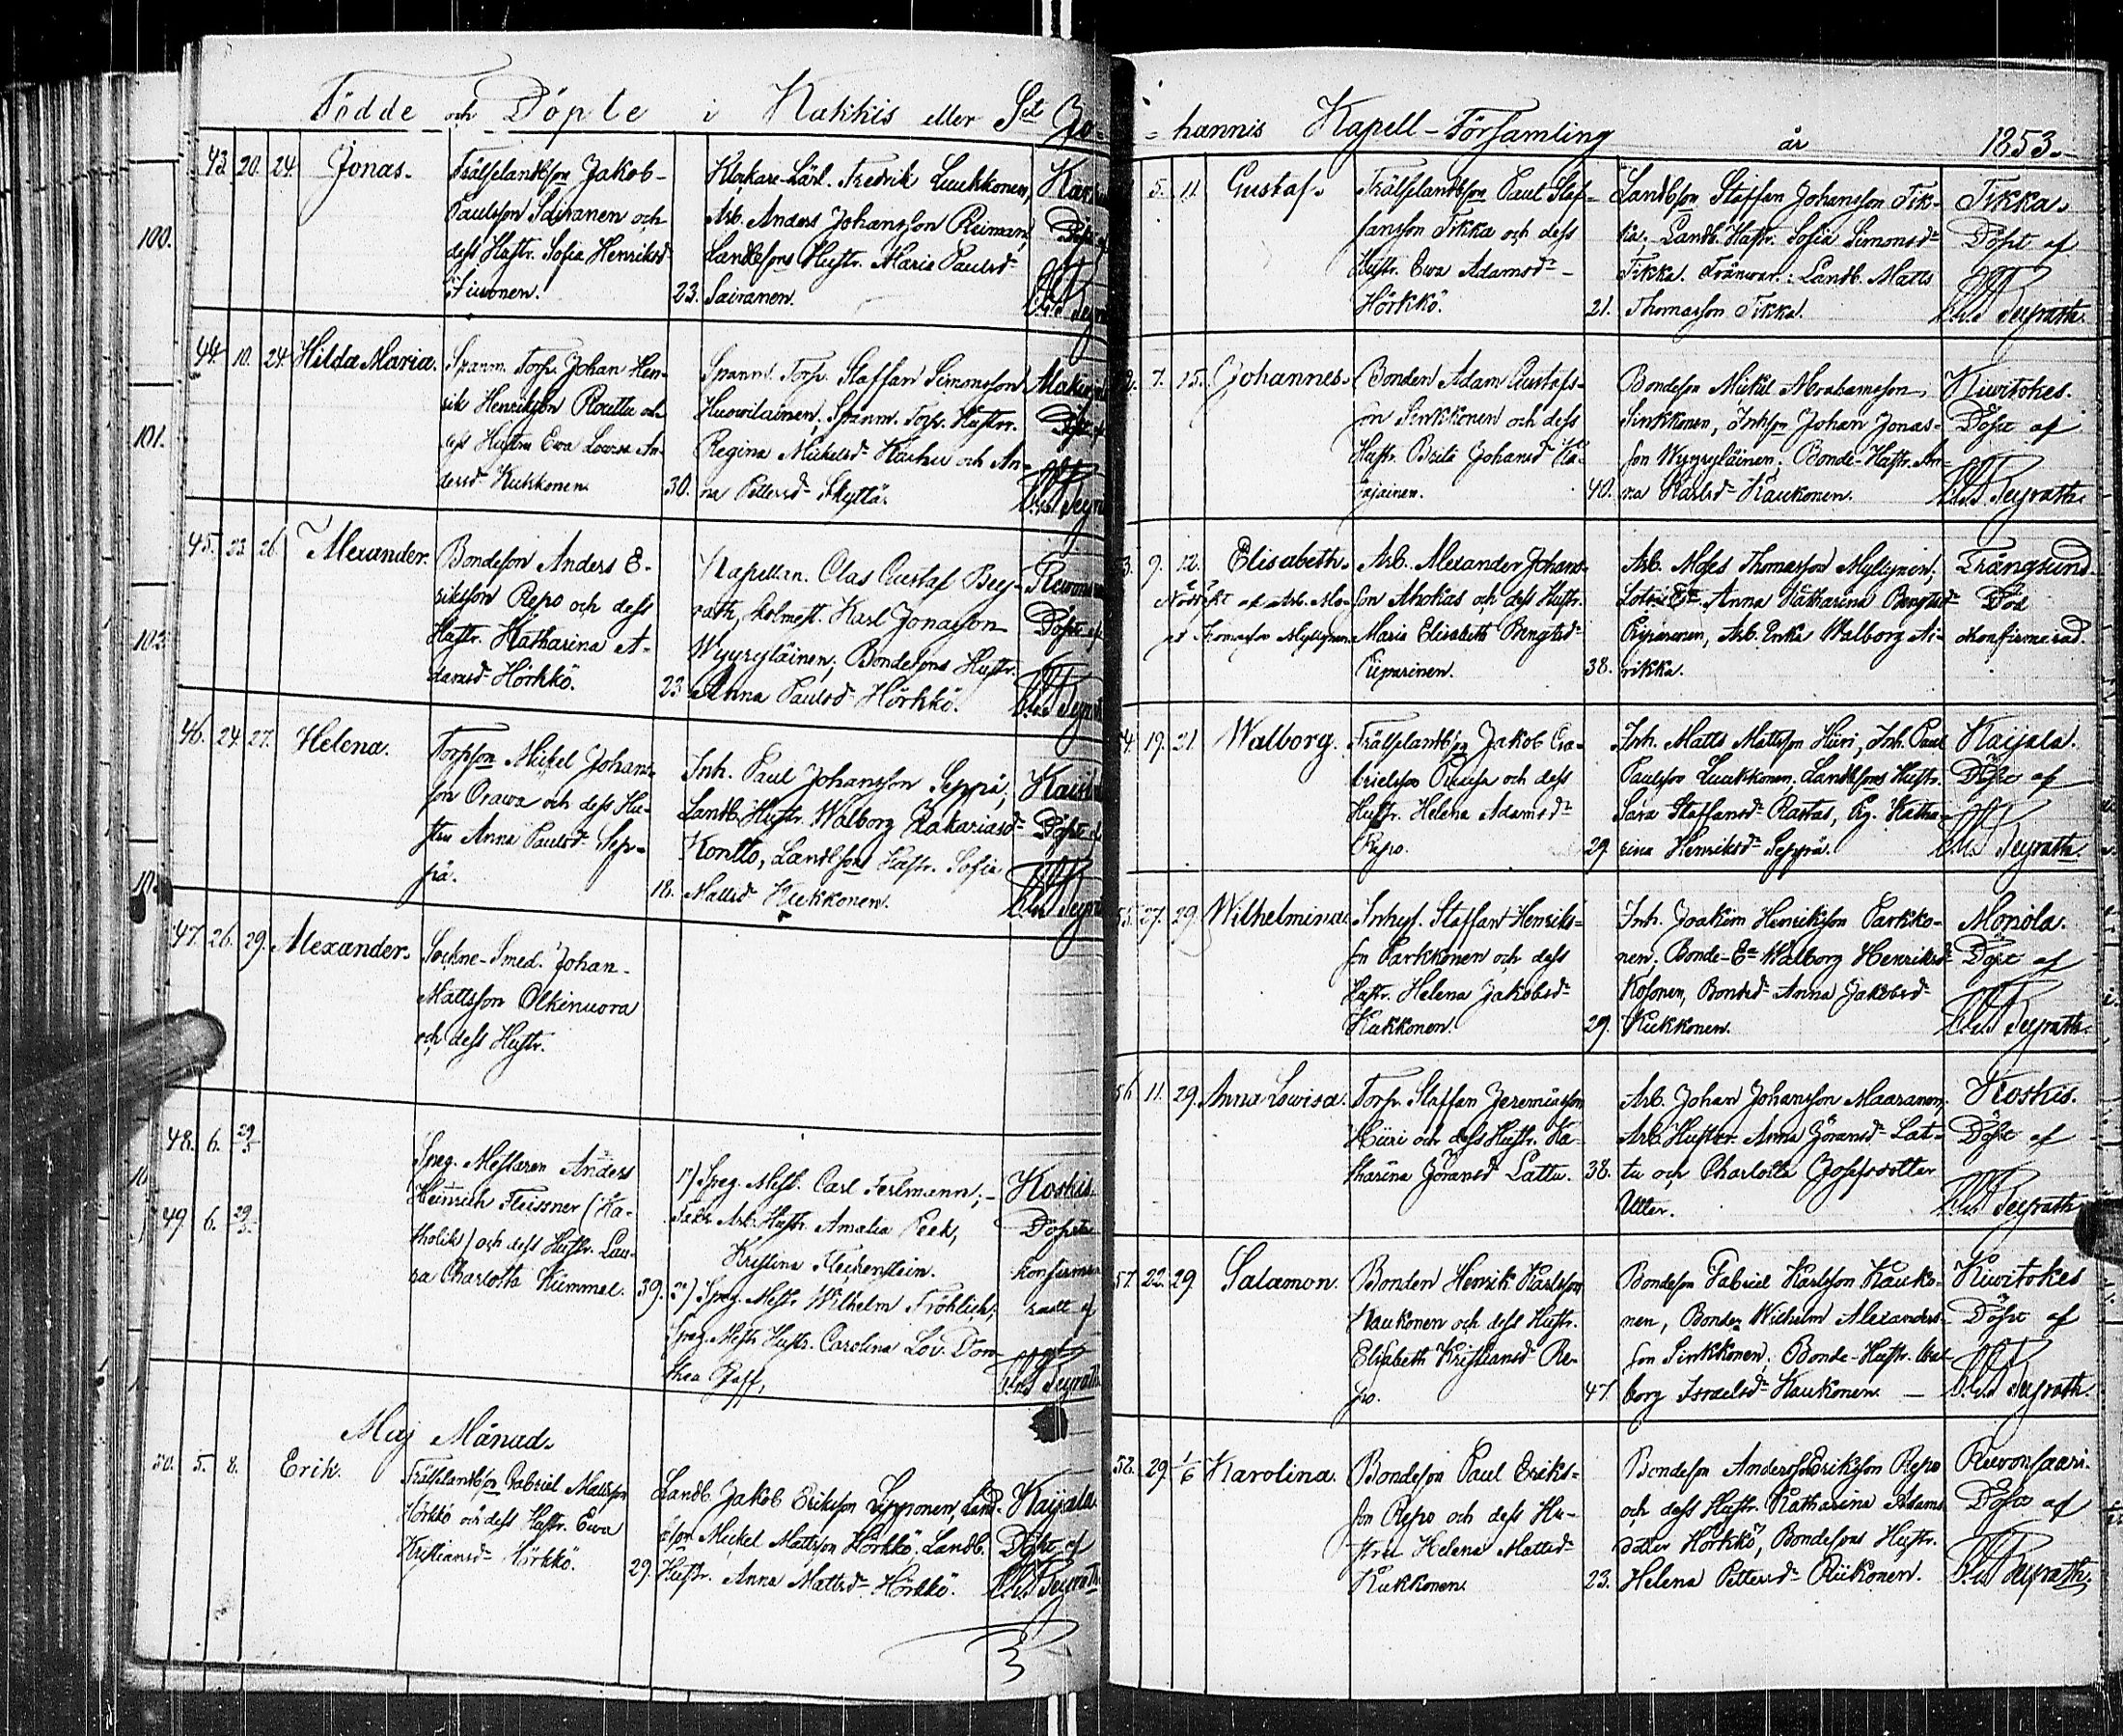 Födde och Döpte i Kakkis eller S:t Jo-
100.
101.
102.
43. 20. 24. Jonas.
Frälselandbson Jakob
Paulsson Sairanen och
dess Hustr. Sofia Henriksd:r
23.
Klockare-Lärl. Fredrik Luukkonen,
Arb. Anders Johansson Reiman,
Landbsons Hustr. Maria Paulsd:r
Sairanen.
44. 10. 24. Hilda Maria.
Spanm. Torp. Johan Hen-
rik Henriksson
dess Hustru Ewa Lowisa An-
dersd:r Kukkonen.
30.
Spanm. Torp. Staffan Simonsson
Huowilainen, Spanm. Torp. Hustr.
Regina Mickelsd:r Karhu och An-
na Pettersd:r Skyttä.
45. 23. 26. Alexander.
Bondeson Anders E-
riksson Repo och dess
Hustr. Katharina A-
damsd:r Hörkkö.
23.
Kapellan. Clas Gustaf Bey-
rath, Karl Jonasson
Wyyryläinen; Bondesons Hustr.
Anna Paulsd:r Hörkkö.
Döpt af
46. 24. 27. Helena.
Torpson Mickel Johans-
son Orawa och dess Hu-
stru Anna Paulsd:r Sep-
pä.
18.
Inh. Paul Johansson Seppä,
Landb. Hustr. Walborg Zakariasd:r
Kontto, Landbsons Hustr. Sofia
Mattsd:r Kukkonen.
Döpt af
47. 26. 29. Alexander.
Sockne-Smed. Johan
Mattsson Olkinuora
och dess Hustr.
48. 6. 29/5
49. 6. 29/5
Speg. Mästaren Anders
Heinrich Fleissner (Ka-
tholik) och dess Hustr. Lau-
ra Charlotta Kümmel.
39.
1:o) Speg. Mäst. Carl Ferlmann;
Arb. Hustr. Amalia Peek,
Kristina Fleckenstein.
2:o) Speg. Mästr. Wilhelm Fröhlich,
Speg. Mästr. Hustr. Carolina Lov. Doro-
thea Pfaff,
Koskis.
Döpte
konfirme-
radt af
Maj Månad.
50. 5. 8. Erik.
Frälselandbson Gabriel Mattsson
Hörkkö och dess Hustr. Ewa
Kristiansd:r Hörkkö.
29.
Landb. Jakob Eriksson Lipponen, Land-
bson Mickel Mattsson Hörkkö. Landb.
Hustr. Anna Mattsd:r Hörkkö.
Kaijala.
Döpt af
C. G. Beyrath.
-hannis Kapell-Församling år 1853.
5. 11. Gustaf.
Frälselandbson Paul Staf-
fansson Tikka och dess
Hustr. Ewa Adamsd:r
Hörkkö.
21.
Landbson Staffan Johansson Tik-
ka. Landb. Hustr. Sofia Simonsd:r
Tikka. Frånvar.: Landb. Matts
Thomasson Tikka.
Tikka.
Döpt af
C. G. Beyrath.
7. 15. Johannes.
Bonden Adam Gustafs-
son Sinkkonen och dess
Hustr. Brita Johansd:r Ka-
jajainen.
40.
Bondeson Mickel Abrahamsson
Sinkkonen, Inhson Johan Jonas-
son Wyyryläinen; Bonde-Hustr. An-
na Karlsd:r Kaukonen.
Kiwitokes.
Döpt af
C. G. Beyrath.
9. 12. Elisabeth.
Nöddöpt af Arb. Mo-
ses Thomasson Myllyinen
Arb. Alexander Johans-
son Ahokas och dess Hustr.
Maria Elisabeth Bengtsd:r
Piiparinen.
38.
Arb. Moses Thomasson Myllyinen;
Anna Katharina Bengtsd:r
Piiparinen, Arb. Enka Walborg Ai-
rikka.
Trångsund.
Döp.
konfirmerad.
19. 21. Walborg.
Frälselandbson Jakob Ga-
brielsson Puusa och dess
Hustr. Helena Adamsd:r
Repo.
29.
Inh. Matts Mattsson Hiiri, Inh. Paul
Paulsson Luukkonen; Landbsons Hustr.
Sara Staffansd:r Rastas, Pig. Katha-
rina Henriksd:r Seppä.
Kaijala.
Döpt af
C. G. Beyrath.
55. 27. 29. Wilhelmina.
Inhys. Staffan Henriks-
son Parkkonen och dess
Hustr. Helena Jakobsd:r
Kukkonen.
29.
Inh. Joakim Henriksson Parkko-
nen; Bonde-E:a Walborg Henriksd:r
Kosonen, Bonded. Anna Jakobsd:r
Kukkonen.
Monola.
Döpt af
C. G. Beyrath.
56. 11. 29. Anna Lowisa.
Torp. Staffan Jeremiasson
Hiiri och dess Hustr. Ka-
tharina Göransd:r Lattu.
38.
Arb. Johan Johansson Maaranen,
Arb. Hustr. Anna Göransd:r Lat-
tu och Charlotta Josefsdotter
Utter.
Koskis.
Döpt af
C. G. Beyrath
57. 22. 29. Salamon.
Bonden Henrik Karlsson
Kaukonen och dess Hustr.
Elisabeth Kristiansd:r Re-
po.
47.
Bondeson Gabriel Karlsson Kauko-
nen, Bonden Wilhelm Alexanders-
son Sinkkonen; Bonde-Hustr. Wal-
borg Israelsd:r Kaukonen.
Kiwitokes
Döpt af
C. G. Beyrath.
58. 29. 1/6 Karolina.
Bondeson Paul Eriks-
son Repo och dess Hu-
stru Helena Mattsd:r
Kukkonen.
23.
Bondeson Anders Eriksson Repo
och dess Hustr. Katharina Adams-
dotter Hörkkö, Bondesons Hustr.
Helena Pettersd:r Riikonen.
Rewonsaari.
Döpt af
C. G. Beyrath.